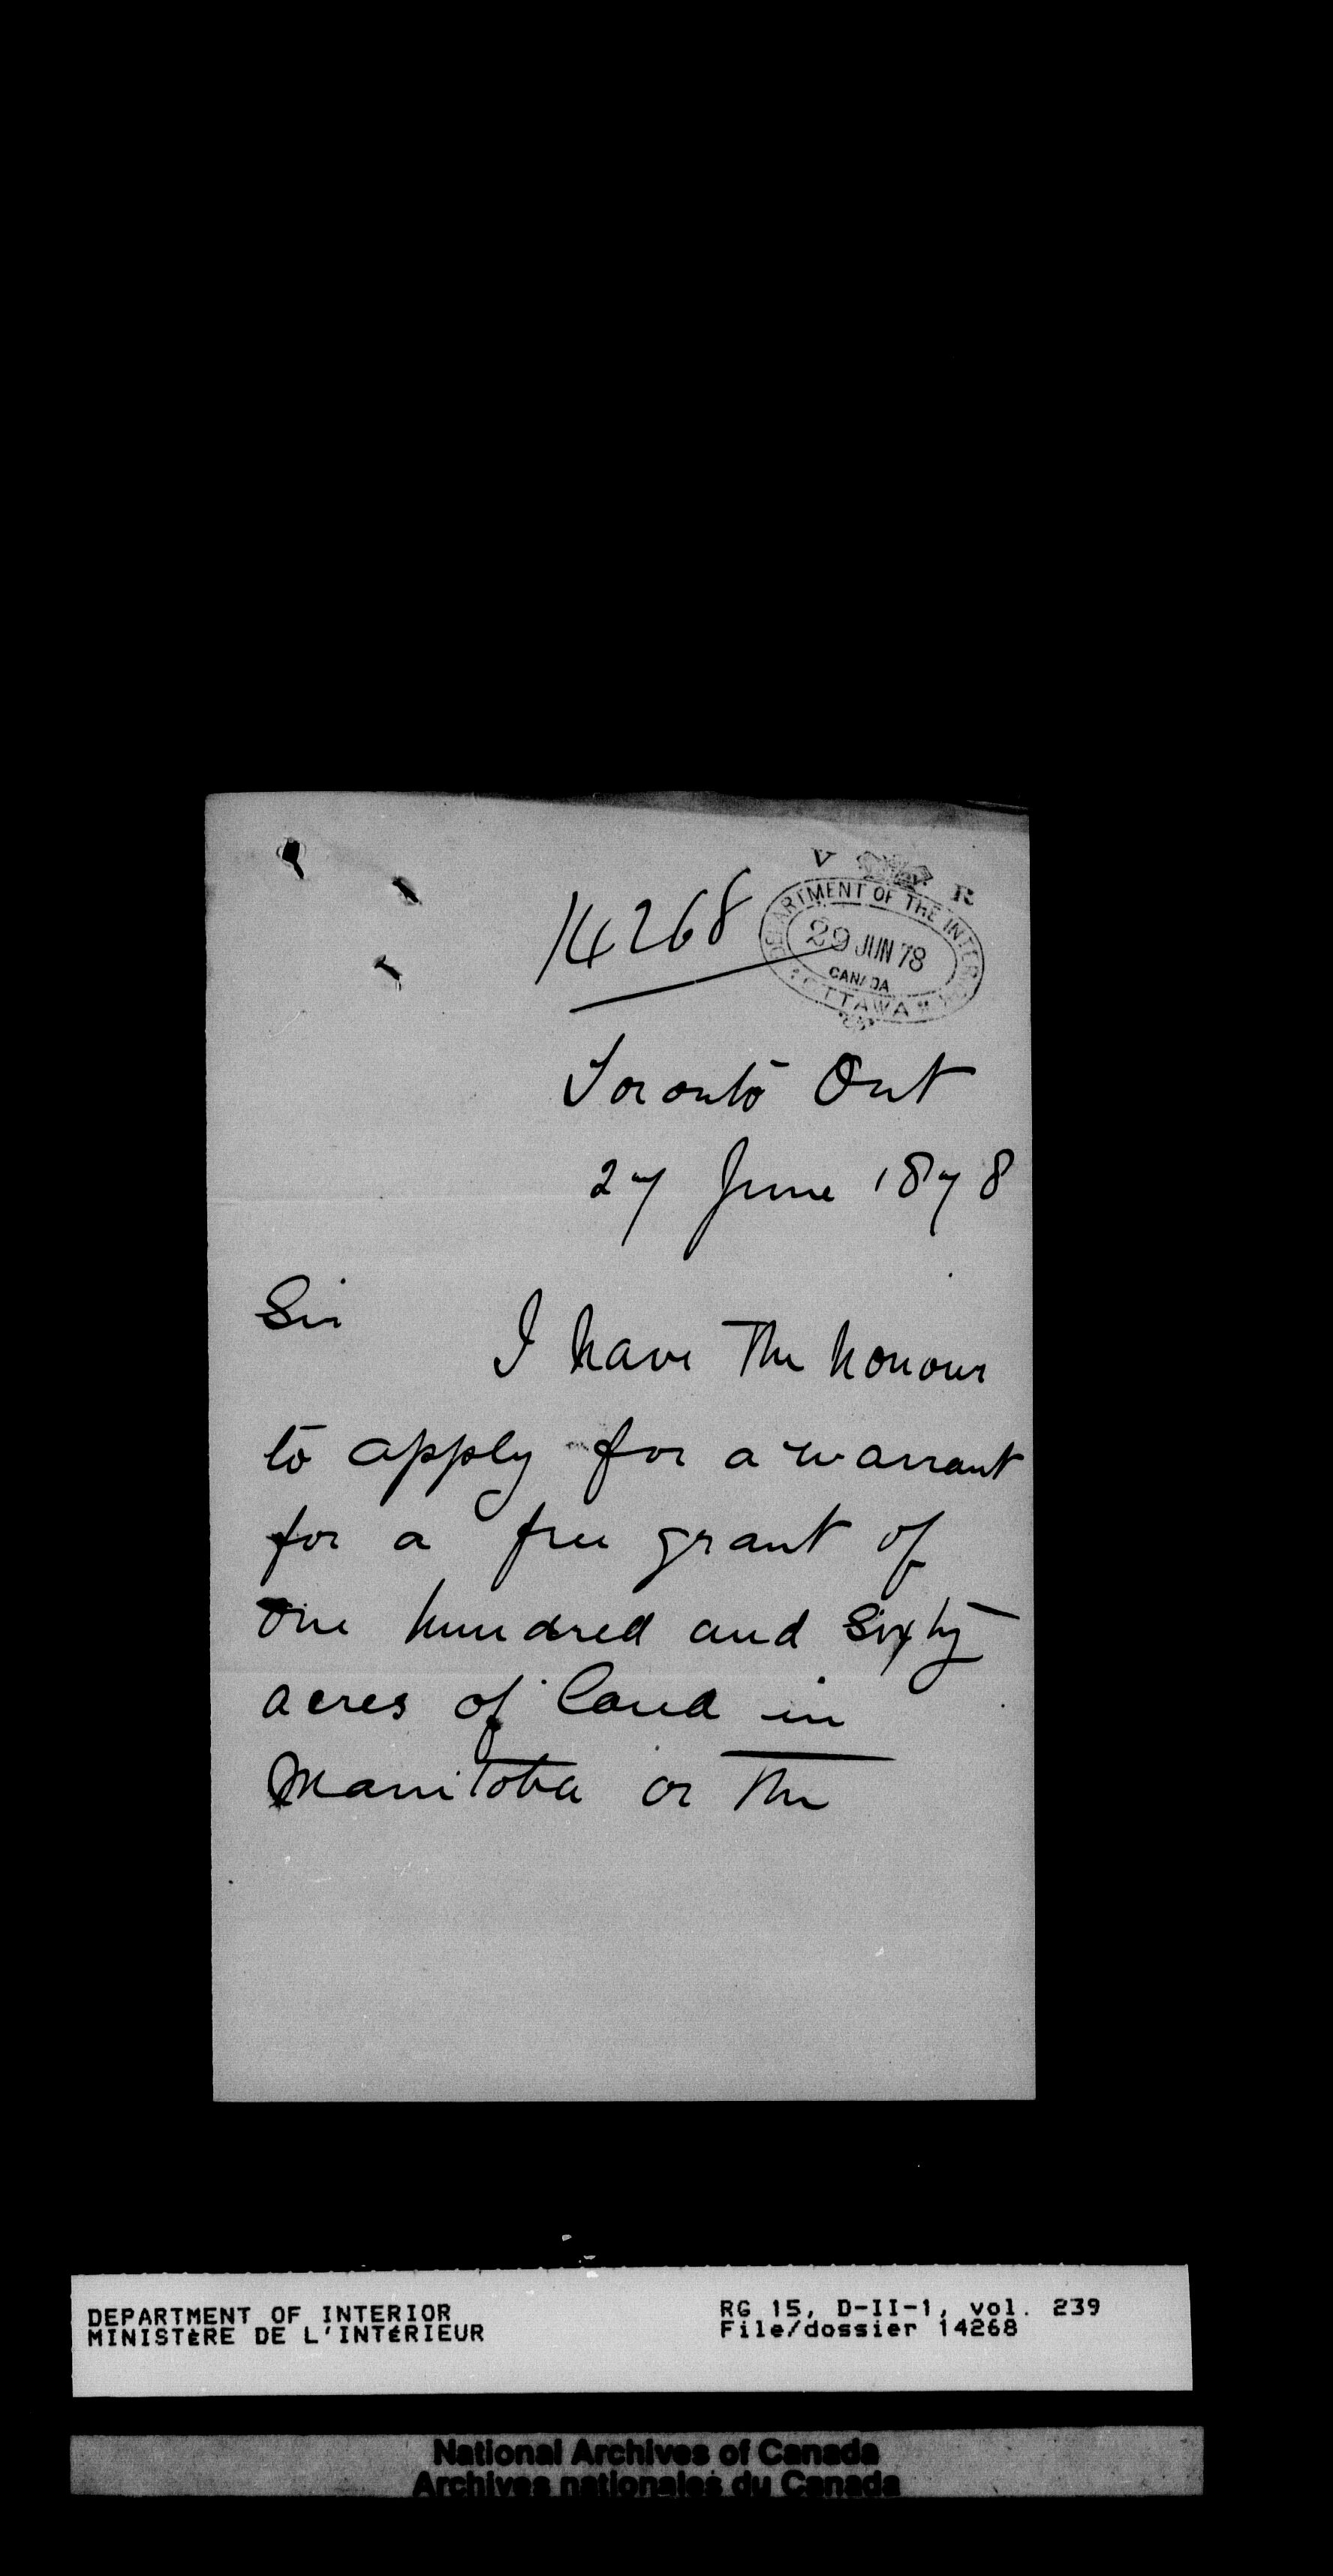 14268
V R
DEPARTMENT OF THE INTERIOR
29 JUN 78
CANADA
OTTAWA
Toronto Ont
27 June 1878
Sir
I have the honour
to apply for a warrant
for a free grant of
one hundred and sixty
acres of land in
Manitoba or the
DEPARTMENT OF INTERIOR
MINISTÈRE DE L'INTÉRIEUR
RG 15, D-II-1, vol. 239
File/dossier 14268
National Archives of Canada
Archives nationales du Canada